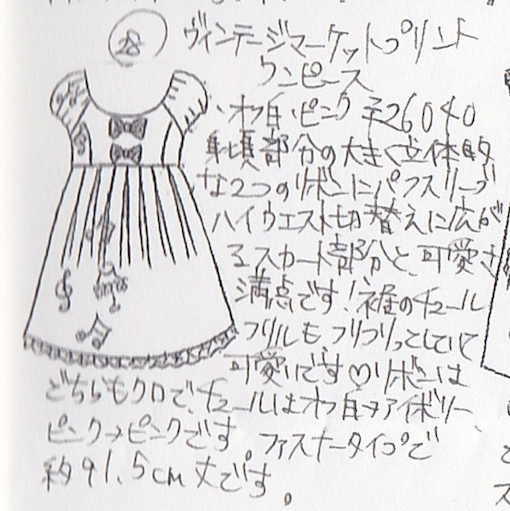 28
ヴィンテージマーケットプリント
ワンピース
・オフ白・ピンク ¥26040
身頃部分の大きく立体的
な2つのリボンにパフスリーブ
ハイウエスト切り替えに広が
るスカート部分と、可愛さ
満点です!裾のチュール
フリルも、フリフリっとしていて
可愛いです♡リボンは
どちらもクロで、チュールはオフ白→アイボリー、
ピンク→ピンクです。ファスナータイプで
約91.5cm丈です。